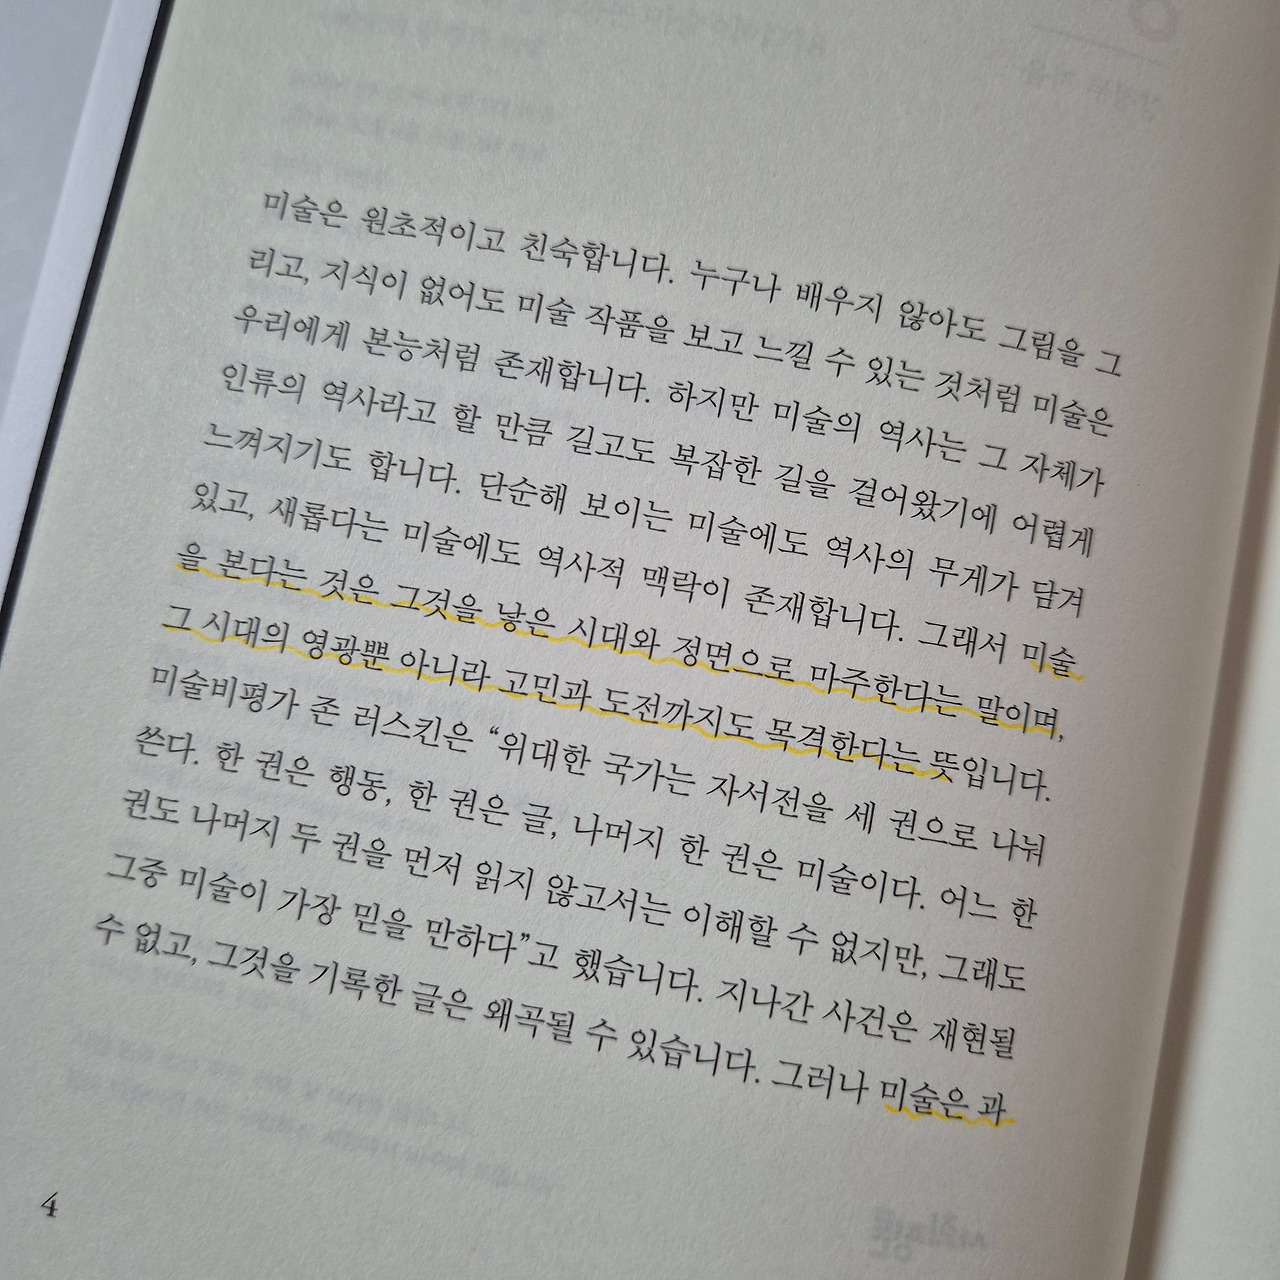 미술은 원초적이고 친숙합니다. 누구나 배우지 않아도 그림을 그
리고, 지식이 없어도 미술 작품을 보고 느낄 수 있는 것처럼 미술은
우리에게 본능처럼 존재합니다. 하지만 미술의 역사는 그 자체가
인류의 역사라고 할 만큼 길고도 복잡한 길을 걸어왔기에 어렵게
느껴지기도 합니다. 단순해 보이는 미술에도 역사의 무게가 담겨
있고, 새롭다는 미술에도 역사적 맥락이 존재합니다. 그래서 미술
을 본다는 것은 그것을 낳은 시대와 정면으로 마주한다는 말이며,
그 시대의 영광뿐 아니라 고민과 도전까지도 목격한다는 뜻입니다.
미술비평가 존 러스킨은 “위대한 국가는 자서전을 세 권으로 나눠
쓴다. 한 권은 행동, 한 권은 글, 나머지 한 권은 미술이다. 어느 한
권도 나머지 두 권을 먼저 읽지 않고서는 이해할 수 없지만, 그래도
그중 미술이 가장 믿을 만하다”고 했습니다. 지나간 사건은 재현될
수 없고, 그것을 기록한 글은 왜곡될 수 있습니다. 그러나 미술은 과
4